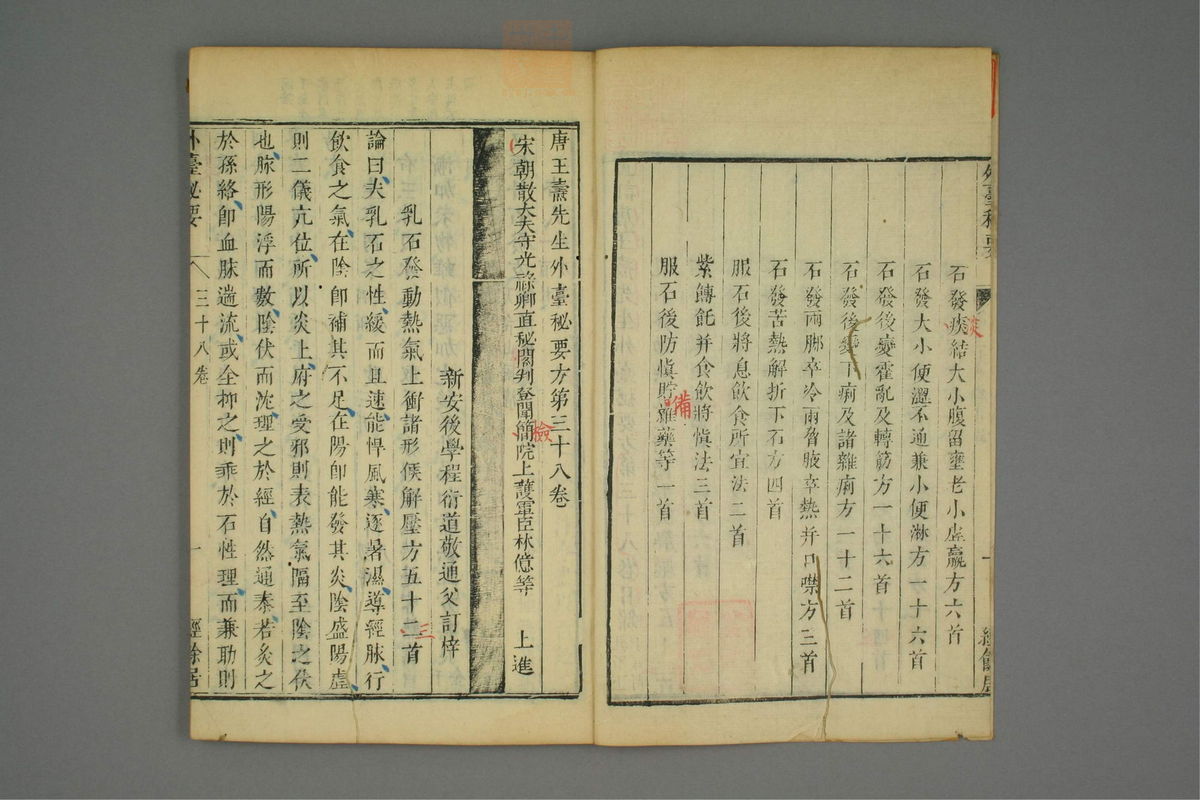 外臺秘要
一
經餘居
石發痰結大小腹留壅老小虛羸方六首
石發大小便澀不通兼小便淋方一十六首
石發後變霍亂及轉筋方一十六首
石發後變下痢及諸雜痢方一十二首
石發兩脚卒冷兩脅腋卒熱并口噤方三首
石發苦熱解折下石方四首
服石後將息飲食所宜法二首
紫餺飥并食飲將慎法三首
服石後防慎貯雜藥等一首
備
唐王燾先生外臺秘要方第三十八卷
宋朝散大夫守光祿卿直秘閣判登聞簡院上護軍臣林億等 上進
檢
新安後學程衍道敬通父訂梓
乳石發動熱氣上衝諸形候解壓方五十二首
三
論曰夫乳石之性緩而且速能悍風寒逐暑濕導經脉行
飲食之氣在陰卽補其不足在陽卽能發其炎陰盛陽虛
則二儀亢位所以炎上府之受邪則表熱氣隔至陰之伏
也脉形陽浮而數陰伏而沈理之於經自然通泰若炙之
於孫絡卽血脉遄流或全抑之則乖於石性理而兼助則
外臺秘要
三十八卷
一
經餘居